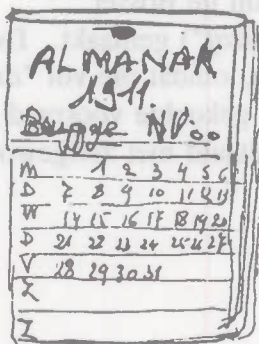 ALMANAK
1911.
Brugge NVoo
M 1 2 3 4 5 6
D 7 8 9 10 11 12 13
W 14 15 16 17 18 19 20
D 21 22 23 24 25 26 27
V 28 29 30 31
Z
Z